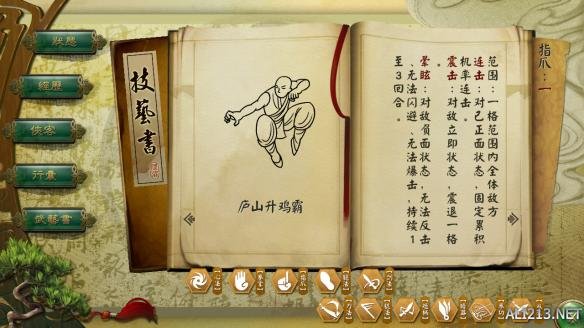 狀態
經歷
俠客
行囊
武藝書
技藝書
庐山升鸡霸
指爪：一
范围：一格范围内全体敌方
连击：对己正面状态，固定累积
机率连击。
震击：对敌立即状态，震退一格
。
晕眩：对敌负面状态，无法反击
、无法闪避、无法爆击，持续1
至3回合。
ALI213.NET